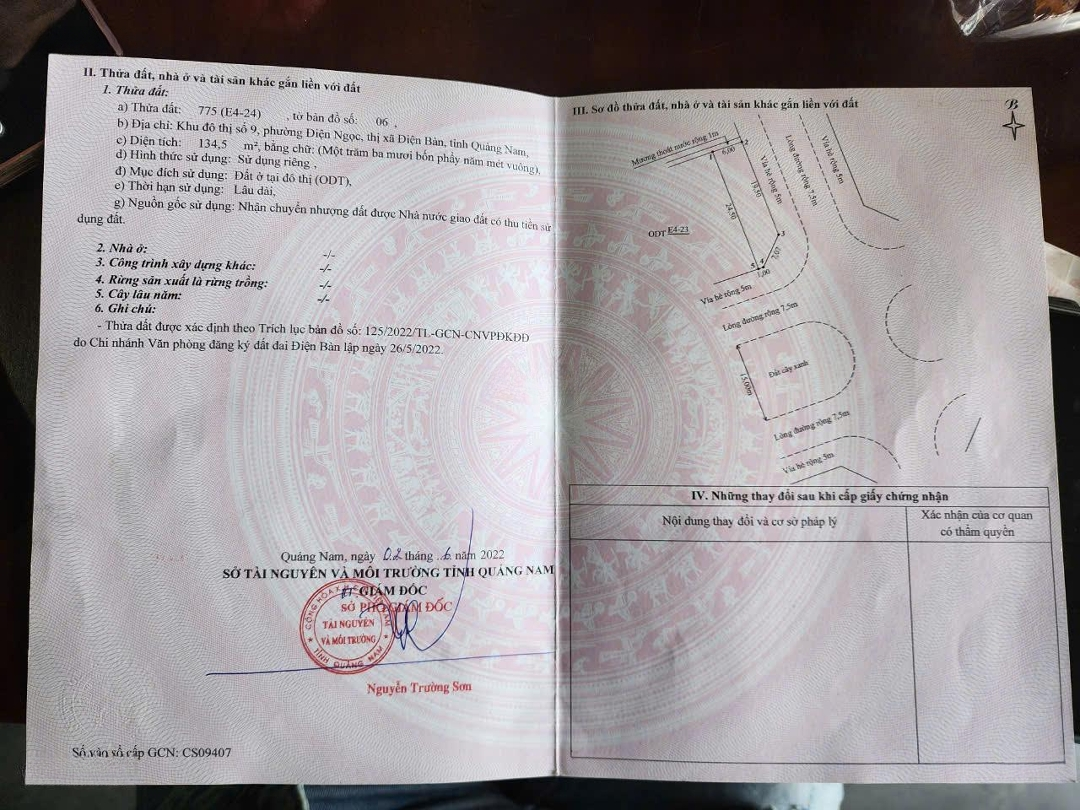 II. Thửa đất, nhà ở và tài sản khác gắn liền với đất
1. Thửa đất:
a) Thửa đất: 775 (E4-24) , tờ bản đồ số: 06 ,
b) Địa chỉ: Khu đô thị số 9, phường Điện Ngọc, thị xã Điện Bàn, tỉnh Quảng Nam,
c) Diện tích: 134,5 m², bằng chữ: (Một trăm ba mươi bốn phẩy năm mét vuông),
d) Hình thức sử dụng: Sử dụng riêng ,
đ) Mục đích sử dụng: Đất ở tại đô thị (ODT),
e) Thời hạn sử dụng: Lâu dài,
g) Nguồn gốc sử dụng: Nhận chuyển nhượng đất được Nhà nước giao đất có thu tiền sử
dụng đất.
2. Nhà ở: -/-
3. Công trình xây dựng khác: -/-
4. Rừng sản xuất là rừng trồng: -/-
5. Cây lâu năm: -/-
6. Ghi chú:
- Thửa đất được xác định theo Trích lục bản đồ số: 125/2022/TL-GCN-CNVPĐKĐĐ
do Chi nhánh Văn phòng đăng ký đất đai Điện Bàn lập ngày 26/5/2022.
Quảng Nam, ngày 02 tháng 6 năm 2022
SỞ TÀI NGUYÊN VÀ MÔI TRƯỜNG TỈNH QUẢNG NAM
KT GIÁM ĐỐC
PHÓ GIÁM ĐỐC
SỞ
TÀI NGUYÊN
VÀ MÔI TRƯỜNG
TỈNH QUẢNG NAM
Nguyễn Trường Sơn
Số vào sổ cấp GCN: CS09407
III. Sơ đồ thửa đất, nhà ở và tài sản khác gắn liền với đất
B
Mương thoát nước rộng 1m
1
6,00
2
19,50
Vỉa hè rộng 5m
Lòng đường rộng 7,5m
Vỉa hè rộng 5m
24,50
ODT E4-23
3
7,07
4
5
1,00
Vỉa hè rộng 5m
Lòng đường rộng 7,5m
Đất cây xanh
15,00m
Lòng đường rộng 7,5m
Vỉa hè rộng 5m
IV. Những thay đổi sau khi cấp giấy chứng nhận
Nội dung thay đổi và cơ sở pháp lý
Xác nhận của cơ quan
có thẩm quyền